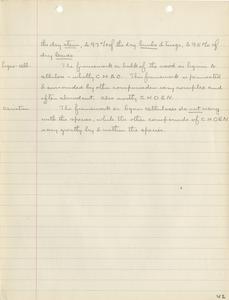 the dry stem, & 97% of the dry limbs & twigs, & 95% of
dry leaves.
Ligno-cell. The framework or bulk of the wood is lignin &
cellulose - wholly C.H.&O. This framework is permeated
& surrounded by other compounds very complex and
often abundant. also mostly C.H.O.N.
variation The framework or ligno celluloses do not vary
with the species, while the other compounds of C.H.O&N.
vary greatly by & within the species.
42